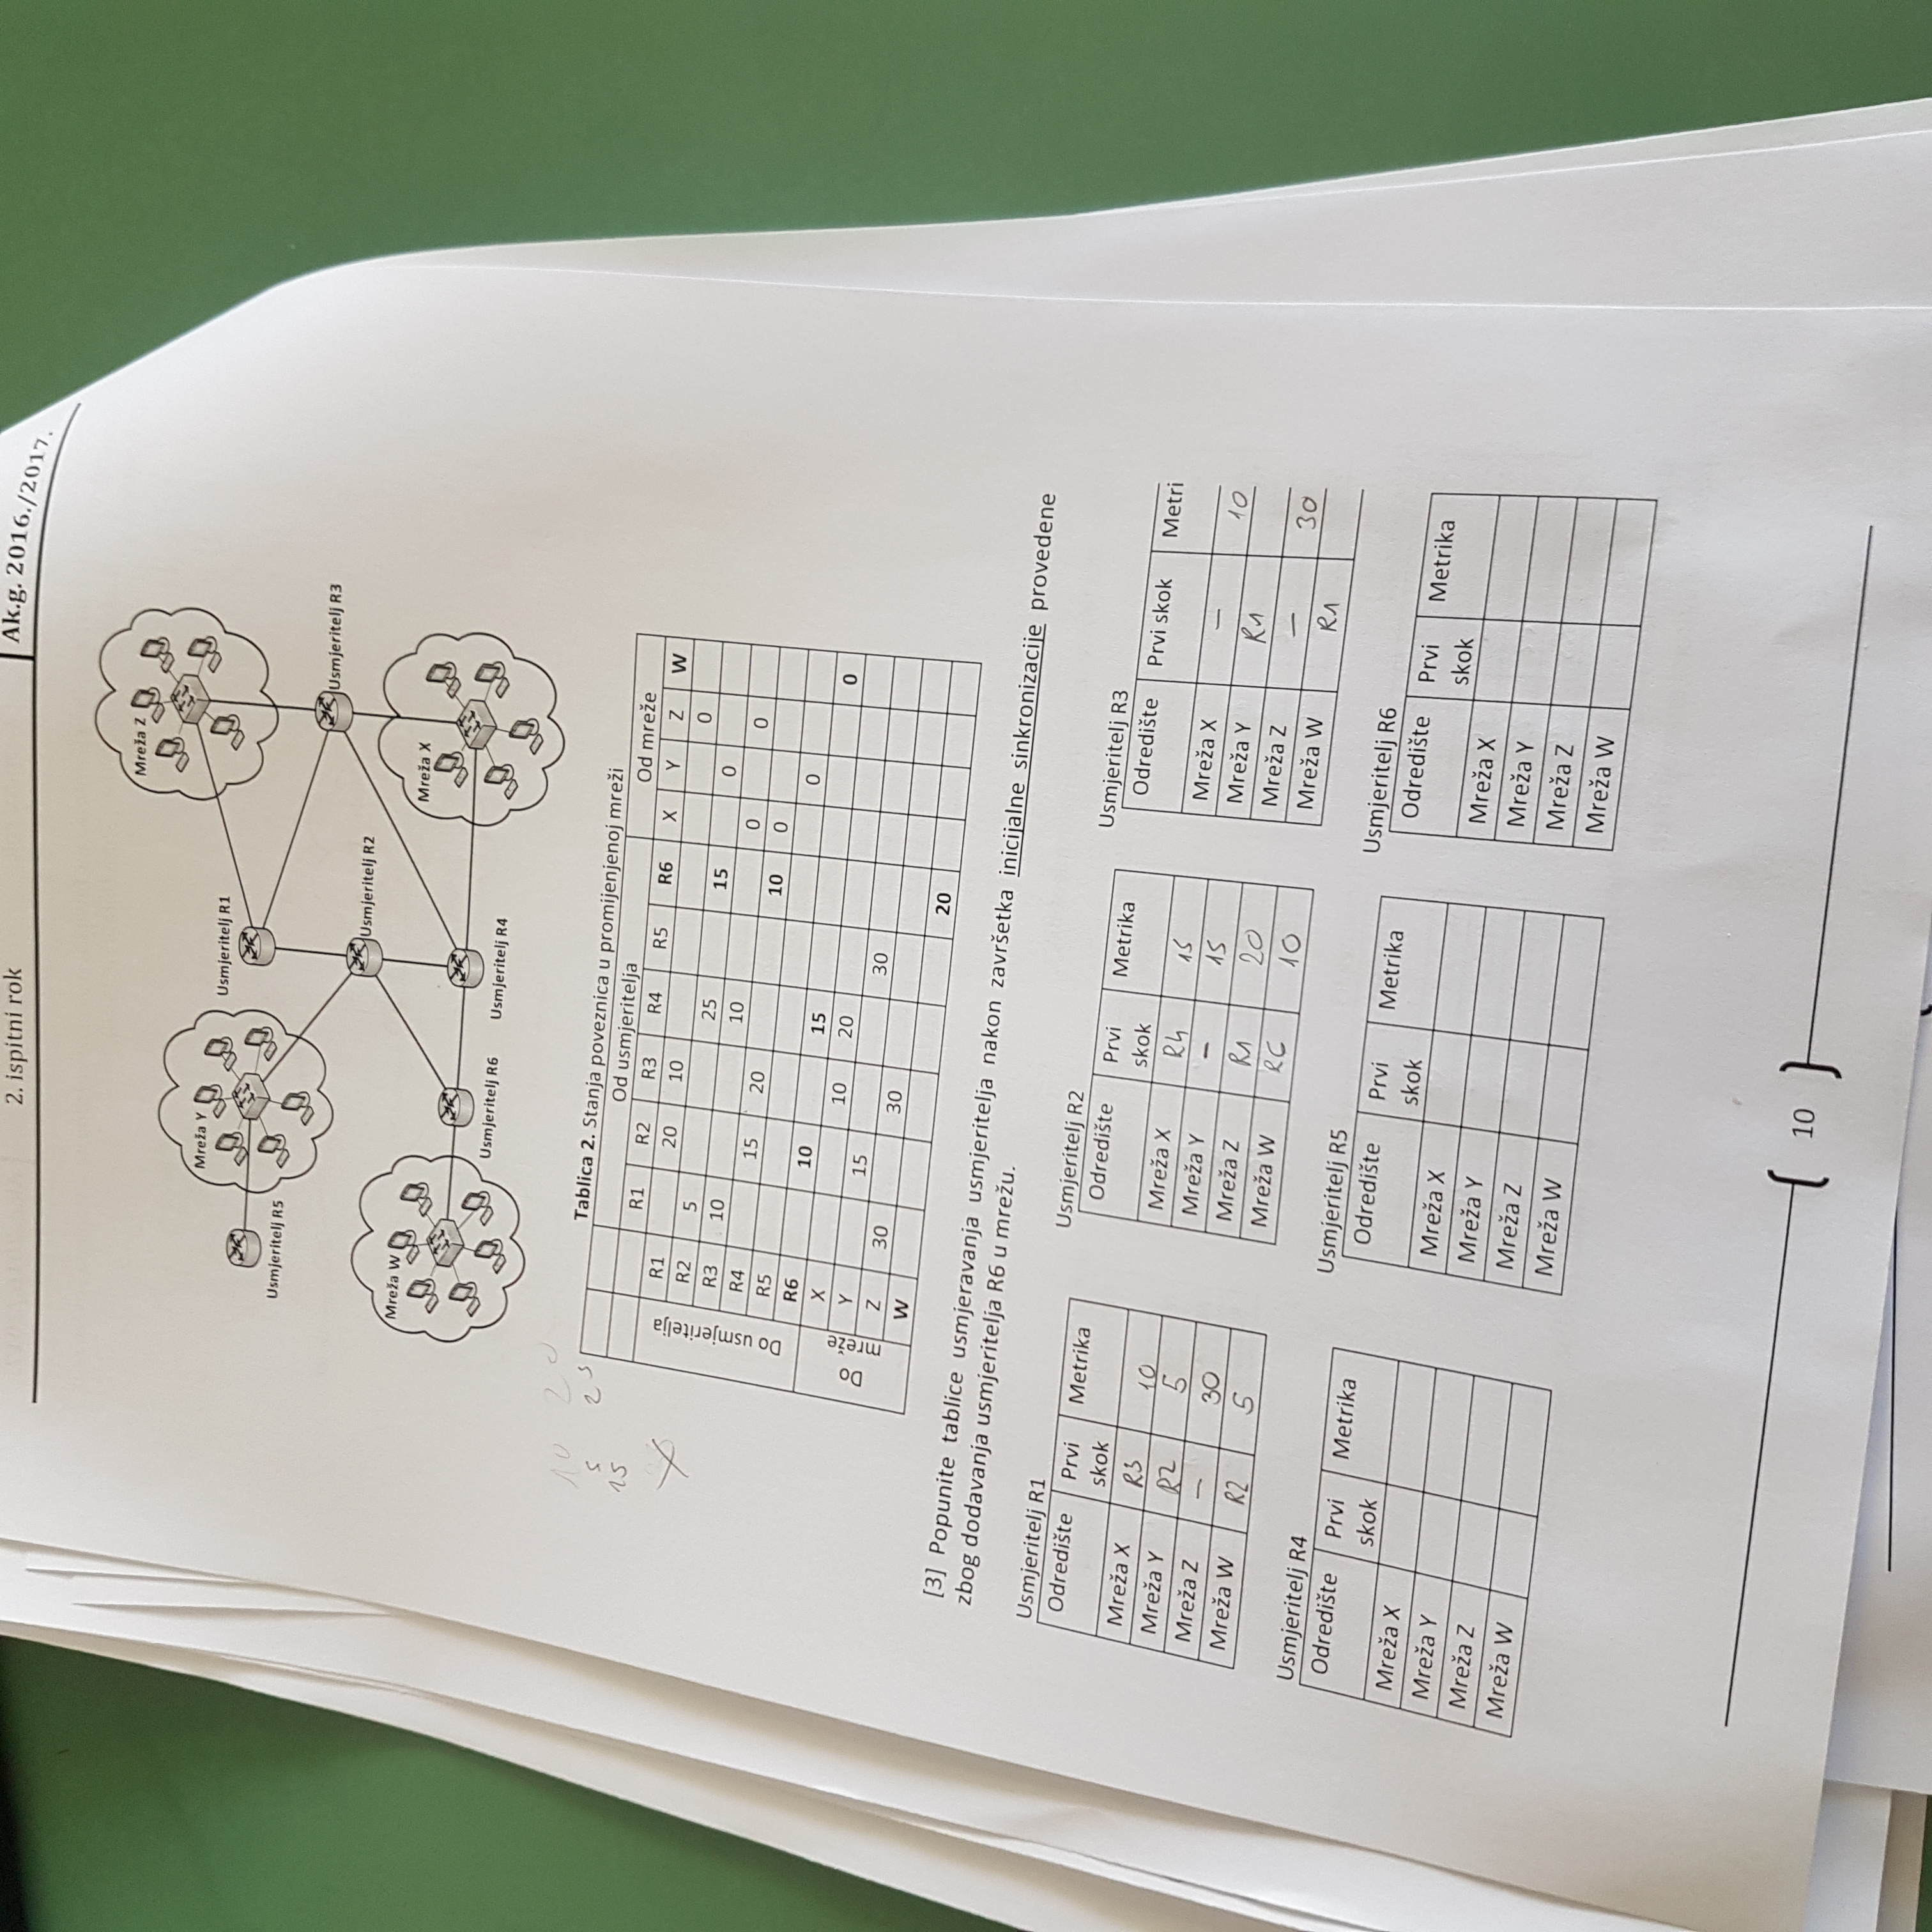 2. ispitni rok
Ak.g. 2016./2017.
Mreža Z
Mreža Y
Usmjeritelj R1
Usmjeritelj R5
Usmjeritelj R3
Usmjeritelj R2
Mreža W
Mreža X
Usmjeritelj R6
Usmjeritelj R4
10 20
5 25
15
Tablica 2. Stanja poveznica u promijenjenoj mreži
Od usmjeritelja Od mreže
R1 R2 R3 R4 R5 R6 X Y Z W
Do usmjeritelja
R1 20 10 0
R2 5 25 15 0
R3 10 10 0 0
R4 15 20 10 0
R5 0
R6 10 15 0
Do mreže
X 10 20
Y 15 30
Z 30 30
W 20
[3] Popunite tablice usmjeravanja usmjeritelja nakon završetka inicijalne sinkronizacije provedene
zbog dodavanja usmjeritelja R6 u mrežu.
Usmjeritelj R1
Odredište Prvi skok Metrika
Mreža X R3 10
Mreža Y R2 5
Mreža Z – 30
Mreža W R2 5
Usmjeritelj R2
Odredište Prvi skok Metrika
Mreža X R4 15
Mreža Y – 15
Mreža Z R1 20
Mreža W R6 10
Usmjeritelj R3
Odredište Prvi skok Metri
Mreža X – 10
Mreža Y R1
Mreža Z – 30
Mreža W R1
Usmjeritelj R4
Odredište Prvi skok Metrika
Mreža X
Mreža Y
Mreža Z
Mreža W
Usmjeritelj R5
Odredište Prvi skok Metrika
Mreža X
Mreža Y
Mreža Z
Mreža W
Usmjeritelj R6
Odredište Prvi skok Metrika
Mreža X
Mreža Y
Mreža Z
Mreža W
10